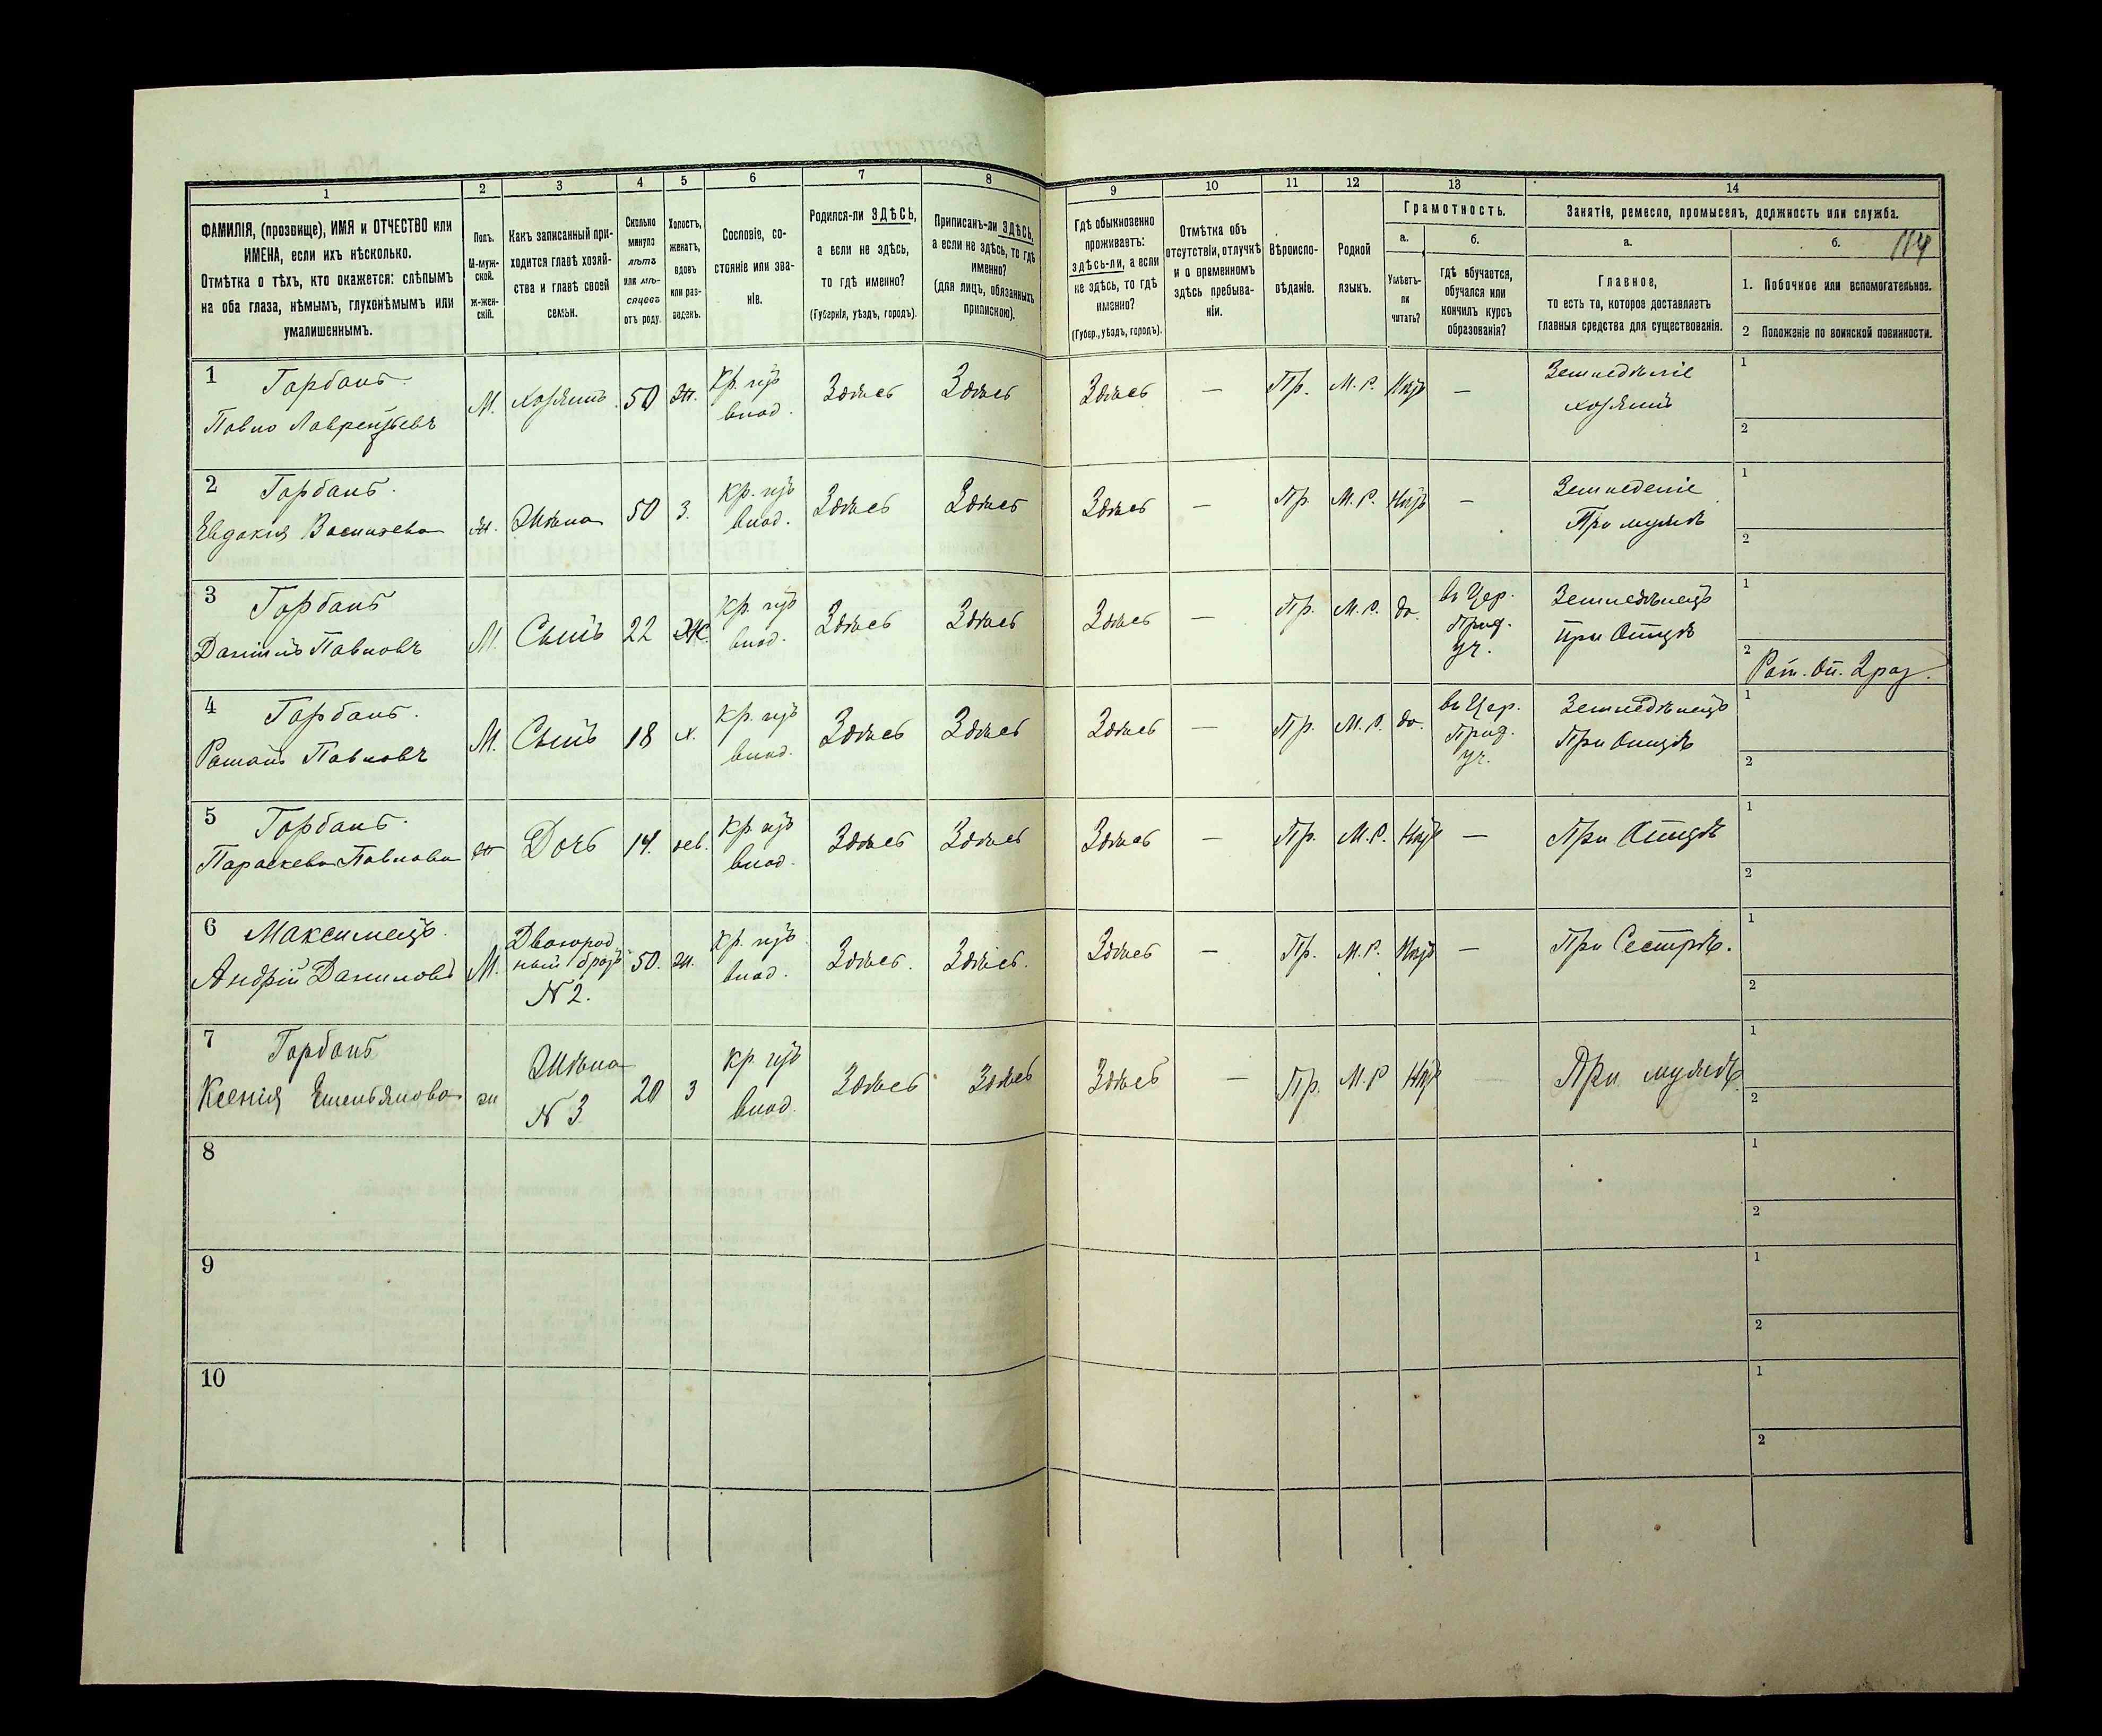 1 2 3 4 5 6 7 8 9 10 11 12 13 14
ФАМИЛІЯ, (прозвище), ИМЯ и ОТЧЕСТВО или
ИМЕНА, если ихъ нѣсколько.
Отмѣтка о тѣхъ, кто окажется: слѣпымъ
на оба глаза, нѣмымъ, глухонѣмымъ или
умалишеннымъ.
Полъ.
М-муж-
ской.
Ж-жен-
скій.
Какъ записанный при-
ходится главѣ хозяй-
ства и главѣ своей
семьи.
Сколько
минуло
лѣтъ
или мѣ-
сяцевъ
отъ роду.
Холостъ,
женатъ,
вдовъ
или раз-
веденъ.
Сословіе, со-
стояніе или зва-
ніе.
Родился-ли ЗДѢСЬ,
а если не здѣсь,
то гдѣ именно?
(Губернія, уѣздъ, городъ).
Приписанъ-ли ЗДѢСЬ,
а если не здѣсь, то гдѣ
именно?
(для лицъ, обязанныхъ
припискою).
Гдѣ обыкновенно
проживаетъ:
здѣсь-ли, а если
не здѣсь, то гдѣ
именно?
(Губер., уѣздъ, городъ).
Отмѣтка объ
отсутствіи, отлучкѣ
и о временномъ
здѣсь пребыва-
ніи.
Вѣроиспо-
вѣданіе.
Родной
языкъ.
Грамотность.
а.
Умѣетъ-
ли
читать?
б.
гдѣ обучается,
обучался или
кончилъ курсъ
образованія?
Занятіе, ремесло, промыселъ, должность или служба.
а.
Главное,
то есть то, которое доставляетъ
главныя средства для существованія.
б.
1. Побочное или вспомогательное.
2 Положеніе по воинской повинности.
1 Горбань
Павло Лаврентьевъ
М. хозяинъ 50 ж. Кр. изъ
влад.
Здѣсь Здѣсь Здѣсь — Пр. М. Р. Нѣтъ —
Земледѣліе
хозяинъ
1
2
2 Горбань
Евдокія Васильева
ж. Жѣна 50 З. Кр. изъ
влад.
Здѣсь Здѣсь Здѣсь — Пр. М. Р. Нѣтъ —
Земледеліе
При мужѣ
1
2
3 Горбань
Даніилъ Павловъ
М. Сынъ 22 Ж. Кр. изъ
влад.
Здѣсь Здѣсь Здѣсь — Пр. М. Р. да.
въ Цер.
Прид.
уч.
Земледѣлецъ
при Отцѣ
1
2 Рат. Оп. 2 раз.
4 Горбань
Романъ Павловъ
М. Сынъ 18 х. Кр. изъ
влад.
Здѣсь Здѣсь Здѣсь — Пр. М. Р. да.
въ Цер.
Прид.
уч.
Земледѣлецъ
При Отцѣ
1
2
5 Горбань
Параскева Павлова
ж Дочь 14. дев. Кр. изъ
влад.
Здѣсь Здѣсь Здѣсь — Пр. М. Р. Нѣтъ —
При Отцѣ
1
2
6 Максимецъ
Андрій Даниловъ
М. Двоюрод
ный братъ
N 2.
50. ж. Кр. изъ
влад.
Здѣсь. Здѣсь. Здѣсь — Пр. М. Р. Нѣтъ —
При Сестрѣ.
1
2
7 Горбань
Ксенія Емельянова
ж Жѣна
N 3
20 З Кр. изъ
влад.
Здѣсь Здѣсь Здѣсь — Пр. М. Р Нѣтъ
При мужѣ
1
2
8
1
2
9
1
2
10
1
2